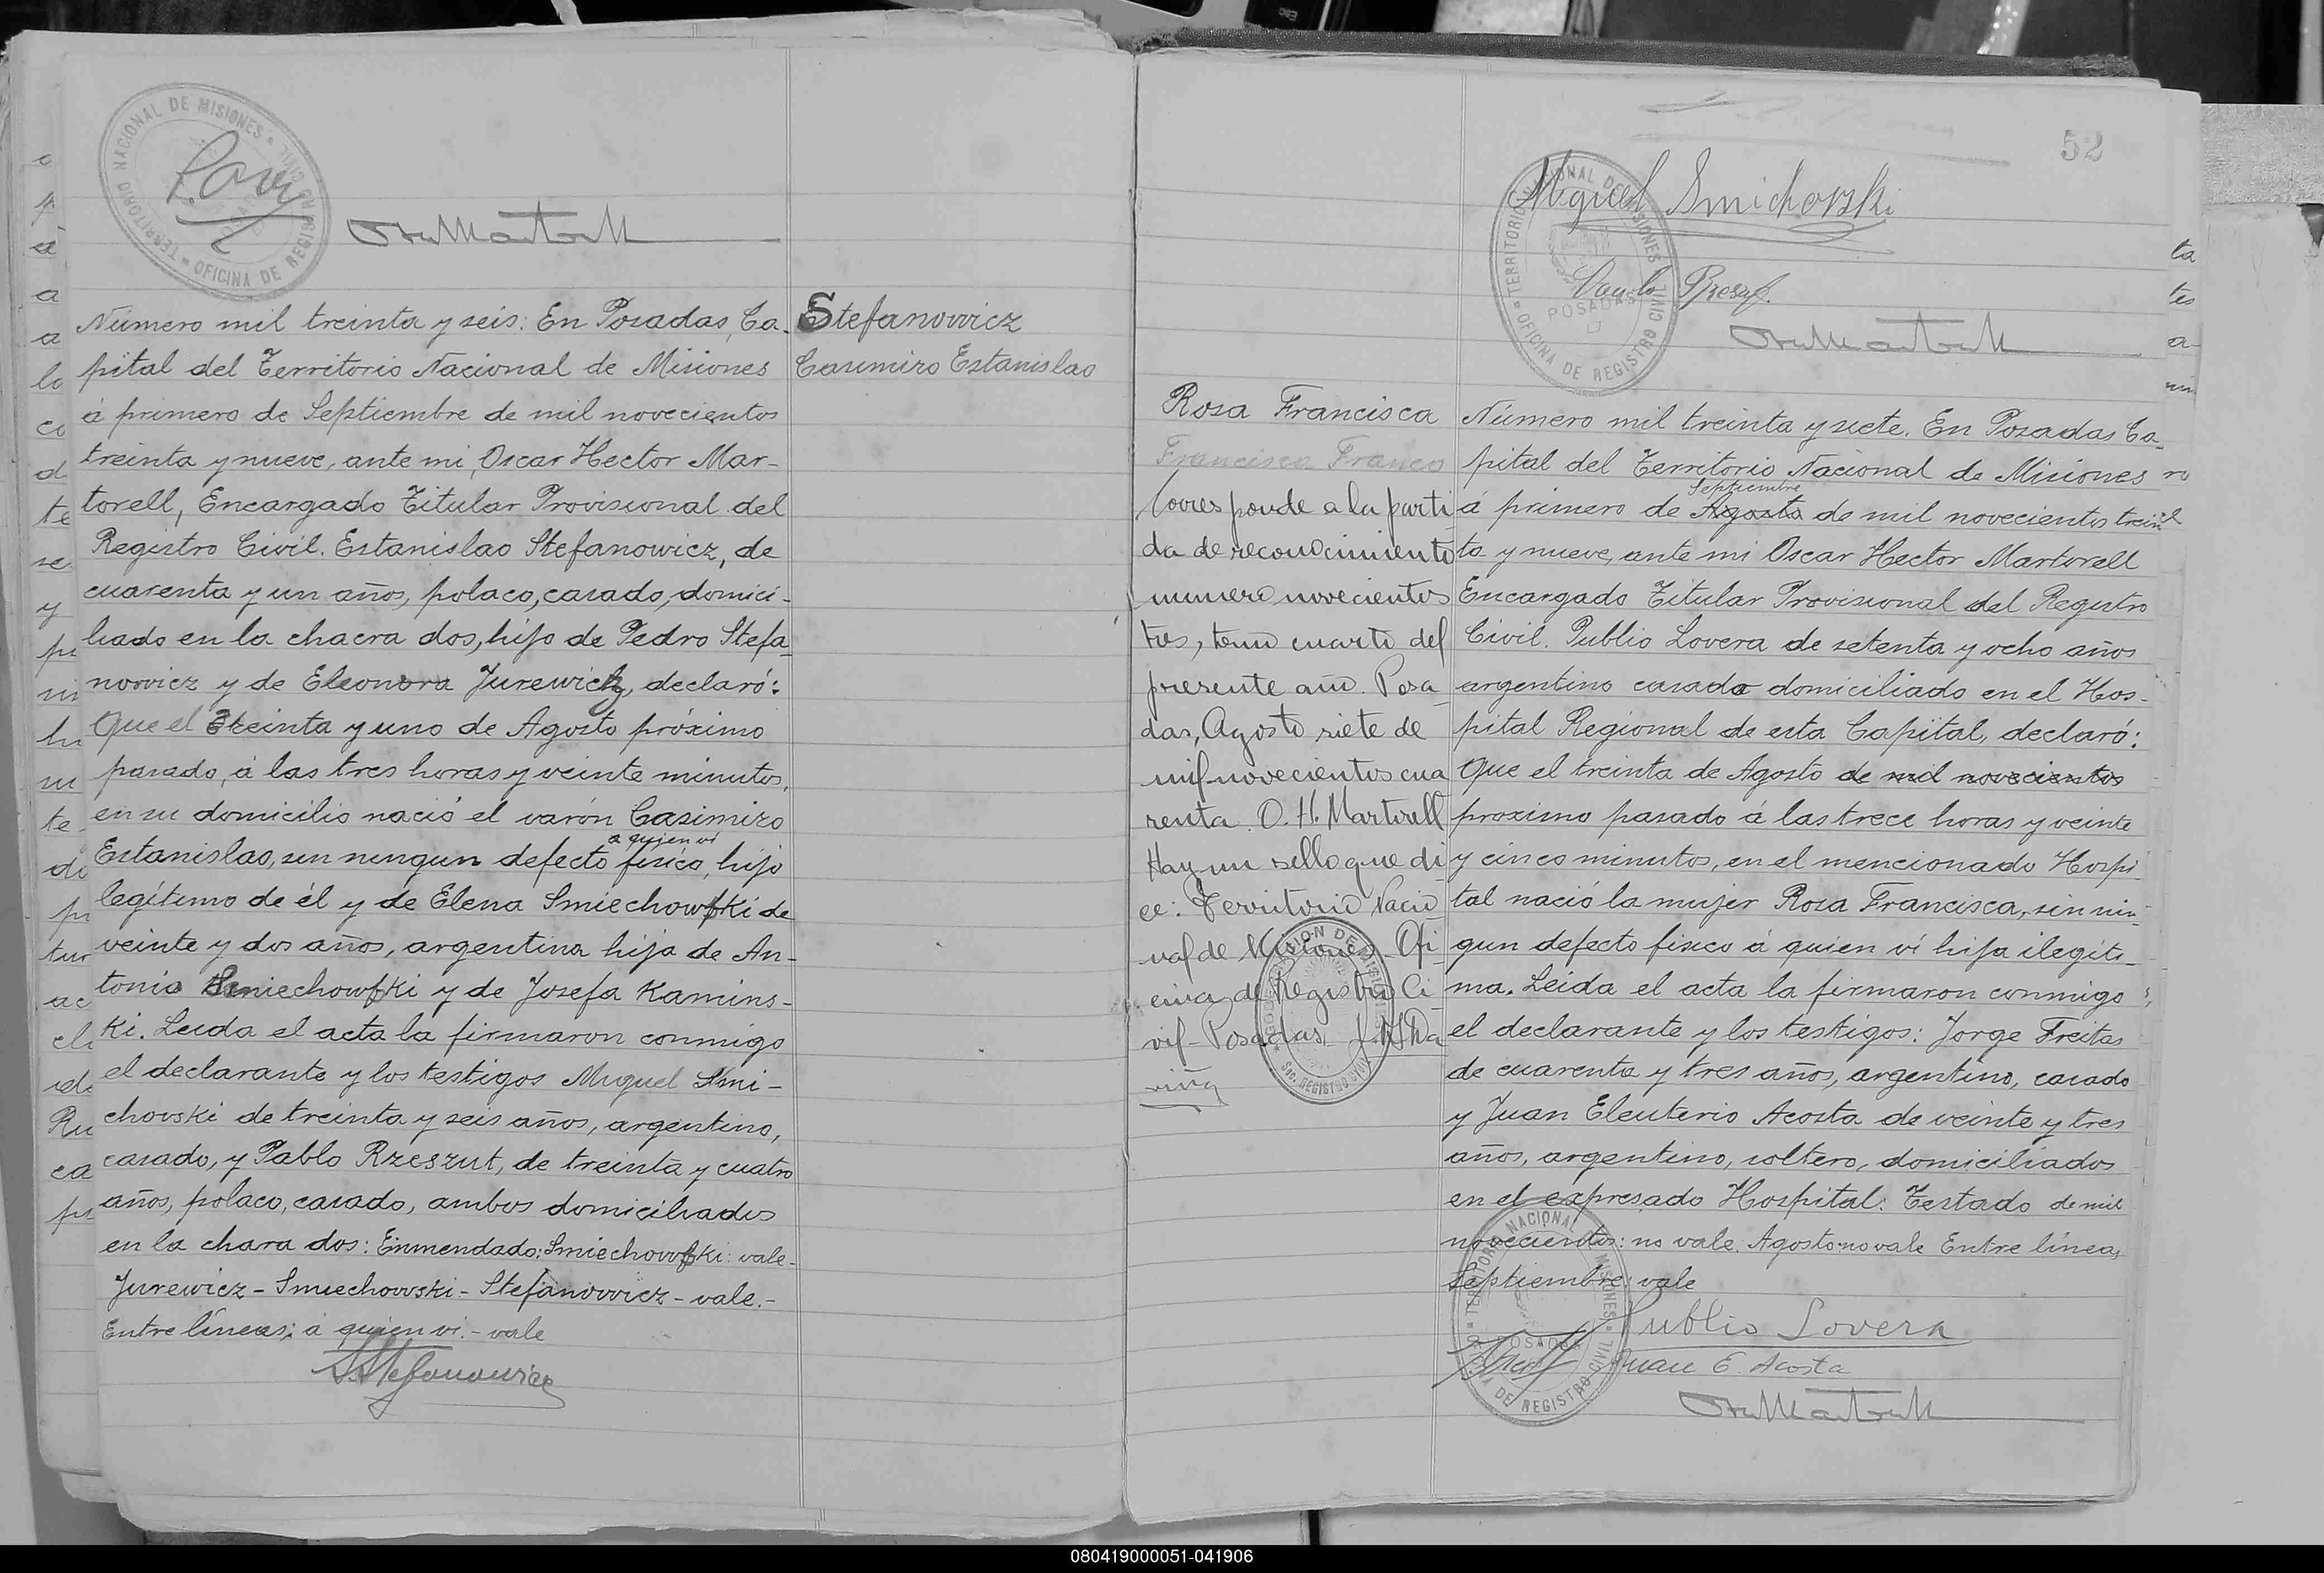 TERRITORIO NACIONAL DE MISIONES
OFICINA DE REGISTRO CIVIL
Stefanowicz
Casimiro Estanislao
Número mil treinta y seis: En Posadas, Ca-
pital del Territorio Nacional de Misiones
á primero de Septiembre de mil novecientos
treinta y nueve, ante mi, Oscar Hector Mar-
torell, Encargado Titular Provisional del
Registro Civil. Estanislao Stefanowicz, de
cuarenta y un años, polaco, casado, domici-
liado en la chacra dos, hijo de Pedro Stefa-
nowicz y de Eleonora Jurewicz, declaró:
Que el treinta y uno de Agosto próximo
pasado, á las tres horas y veinte minutos,
en su domicilio nació el varón Casimiro
a quien vi
Estanislao, sin ningun defecto fisico, hijo
legítimo de él y de Elena Smiechowski de
veinte y dos años, argentina hija de An-
tonio Smiechowski y de Josefa Kamins-
ki. Leida el acta la firmaron conmigo
el declarante y los testigos Miguel Smi-
chovski de treinta y seis años, argentino,
casado, y Pablo Rzeszut, de treinta y cuatro
años, polaco, casado, ambos domiciliados
en la chara dos: Enmendado: Smiechowski: vale-
Jurewicz - Smiechowski - Stefanowicz - vale.-
Entre líneas: á quien vi.- vale
S. Stefanowicz
52
Miguel Smichovski
TERRITORIO NACIONAL DE MISIONES
POSADAS
OFICINA DE REGISTRO CIVIL
Rosa Francisca
Francisca Franco
Corresponde a la parti
da de reconocimiento
numero novecientos
tres, tomo cuarto del
presente año. Posa
das, Agosto siete de
mil novecientos cua
renta. O. H. Martorell
Hay un sello que di
ce: Territorio Nacio
nal de Misiones. Ofi
cina de Registro Ci
vil - Posadas
Número mil treinta y siete. En Posadas Ca-
pital del Territorio Nacional de Misiones
Septiembre
á primero de Agosto de mil novecientos trein
ta y nueve, ante mi Oscar Hector Martorell
Encargado Titular Provisional del Registro
Civil. Publio Lovera de setenta y ocho años
argentino casado domiciliado en el Hos-
pital Regional de esta Capital, declaró:
Que el treinta de Agosto de mil novecientos
proximo pasado á las trece horas y veinte
y cinco minutos, en el mencionado Hospi-
tal nació la mujer Rosa Francisca, sin nin-
gun defecto fisico á quien ví hija ilegíti-
ma. Leida el acta la firmaron conmigo
el declarante y los testigos: Jorge Freitas
de cuarenta y tres años, argentino, casado
y Juan Eleuterio Acosta de veinte y tres
años, argentino, soltero, domiciliados
en el expresado Hospital: Testado de mil
novecientos: no vale. Agosto no vale Entre líneas
Septiembre: vale
Publio Lovera
Juan E. Acosta
080419000051-041906